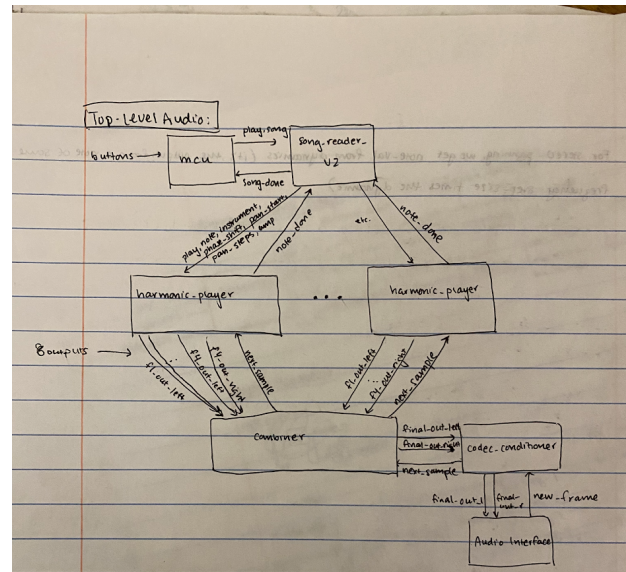 Top-Level Audio:
buttons
mcu
play, song
song_reader_
v2
song_done
play, note, instrument,
phase_shift, pan_start,
pan_steps, amp
note_done
etc.
note_done
harmonic_player
...
harmonic_player
8 outputs
f1_out_left
...
f4_out_left
f4_out_right
next_sample
f1_out_left
...
f4_out_right
next_sample
combiner
final_out_left
final_out_right
next_sample
codec_conditioner
final_out_l
final_
out_r
new_frame
Audio Interface